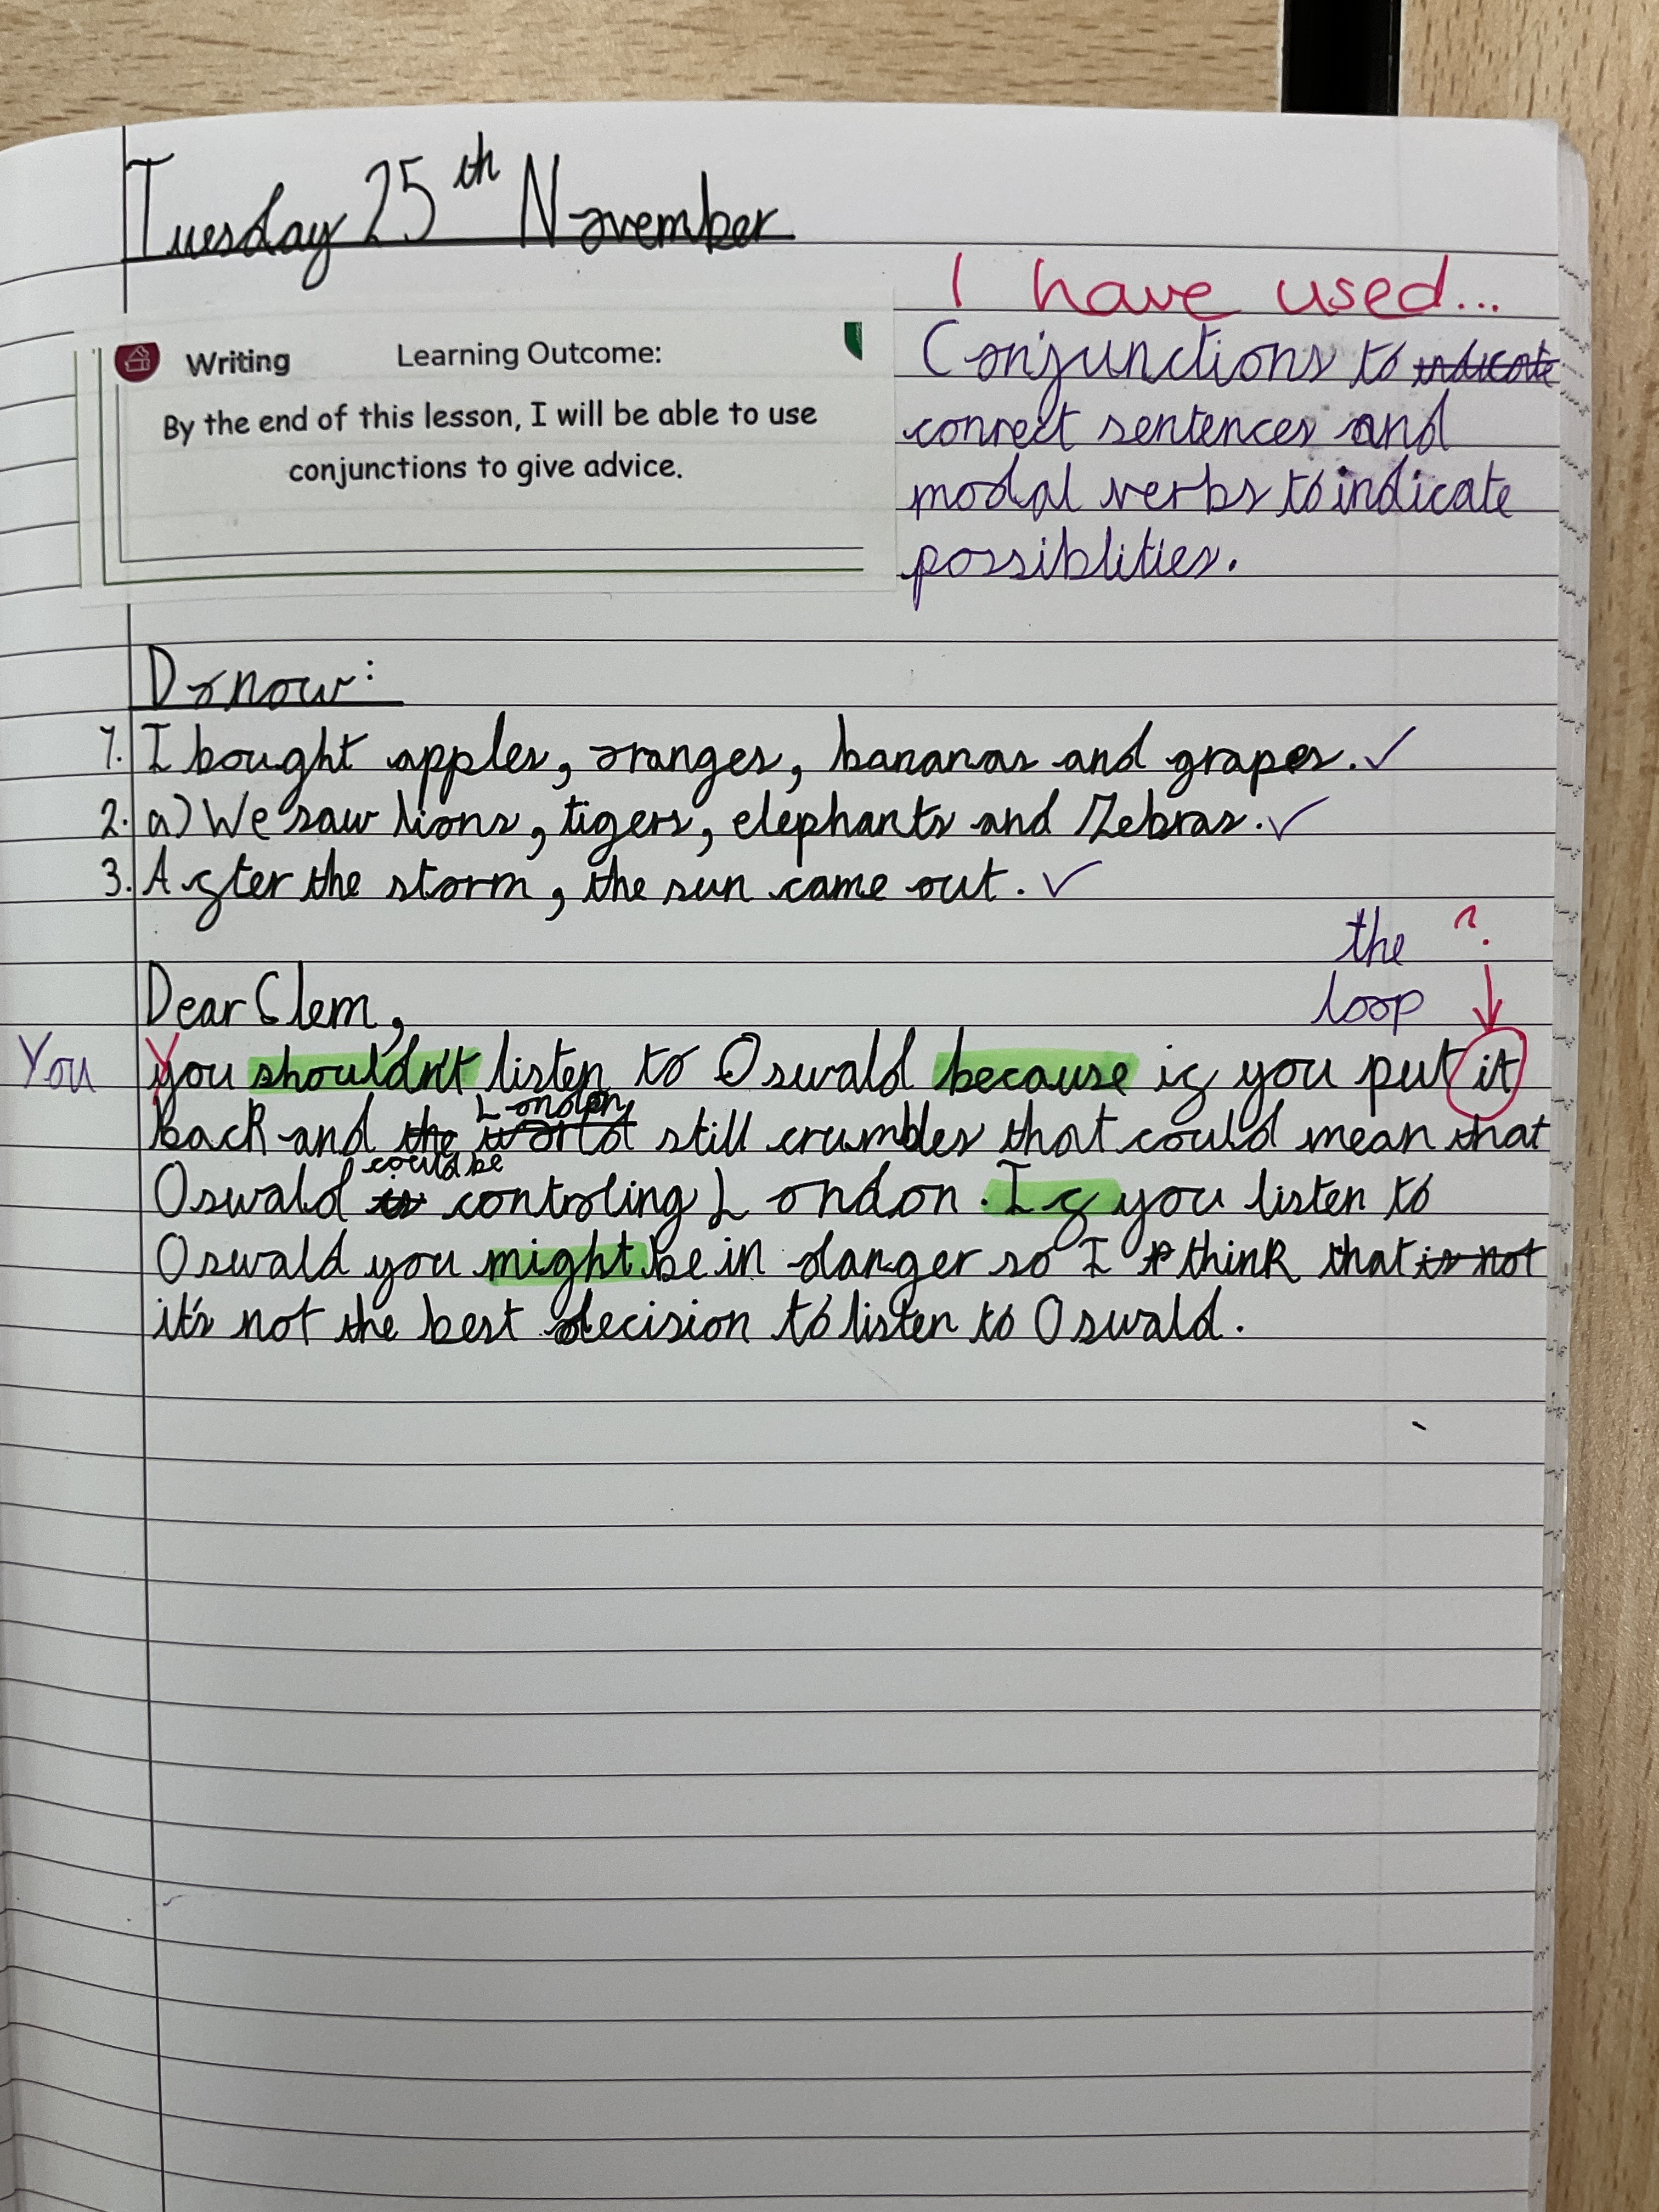 Tuesday 25th November
I have used...
Writing Learning Outcome:
By the end of this lesson, I will be able to use
conjunctions to give advice.
Conjunctions to indicate
connect sentences and
modal verbs to indicate
possiblities.
Do now:
1. I bought apples, oranges, bananas and grapes. ✓
2. a) We saw lions, tigers, elephants and Zebras. ✓
3. After the storm, the sun came out. ✓
the ?
loop
Dear Clem,
You you shouldn't listen to Oswald because if you put it
London
back and the world still crumbles that could mean that
could be
Oswald is controling London. If you listen to
Oswald you might be in danger so I think that is not
it's not the best decision to listen to Oswald.